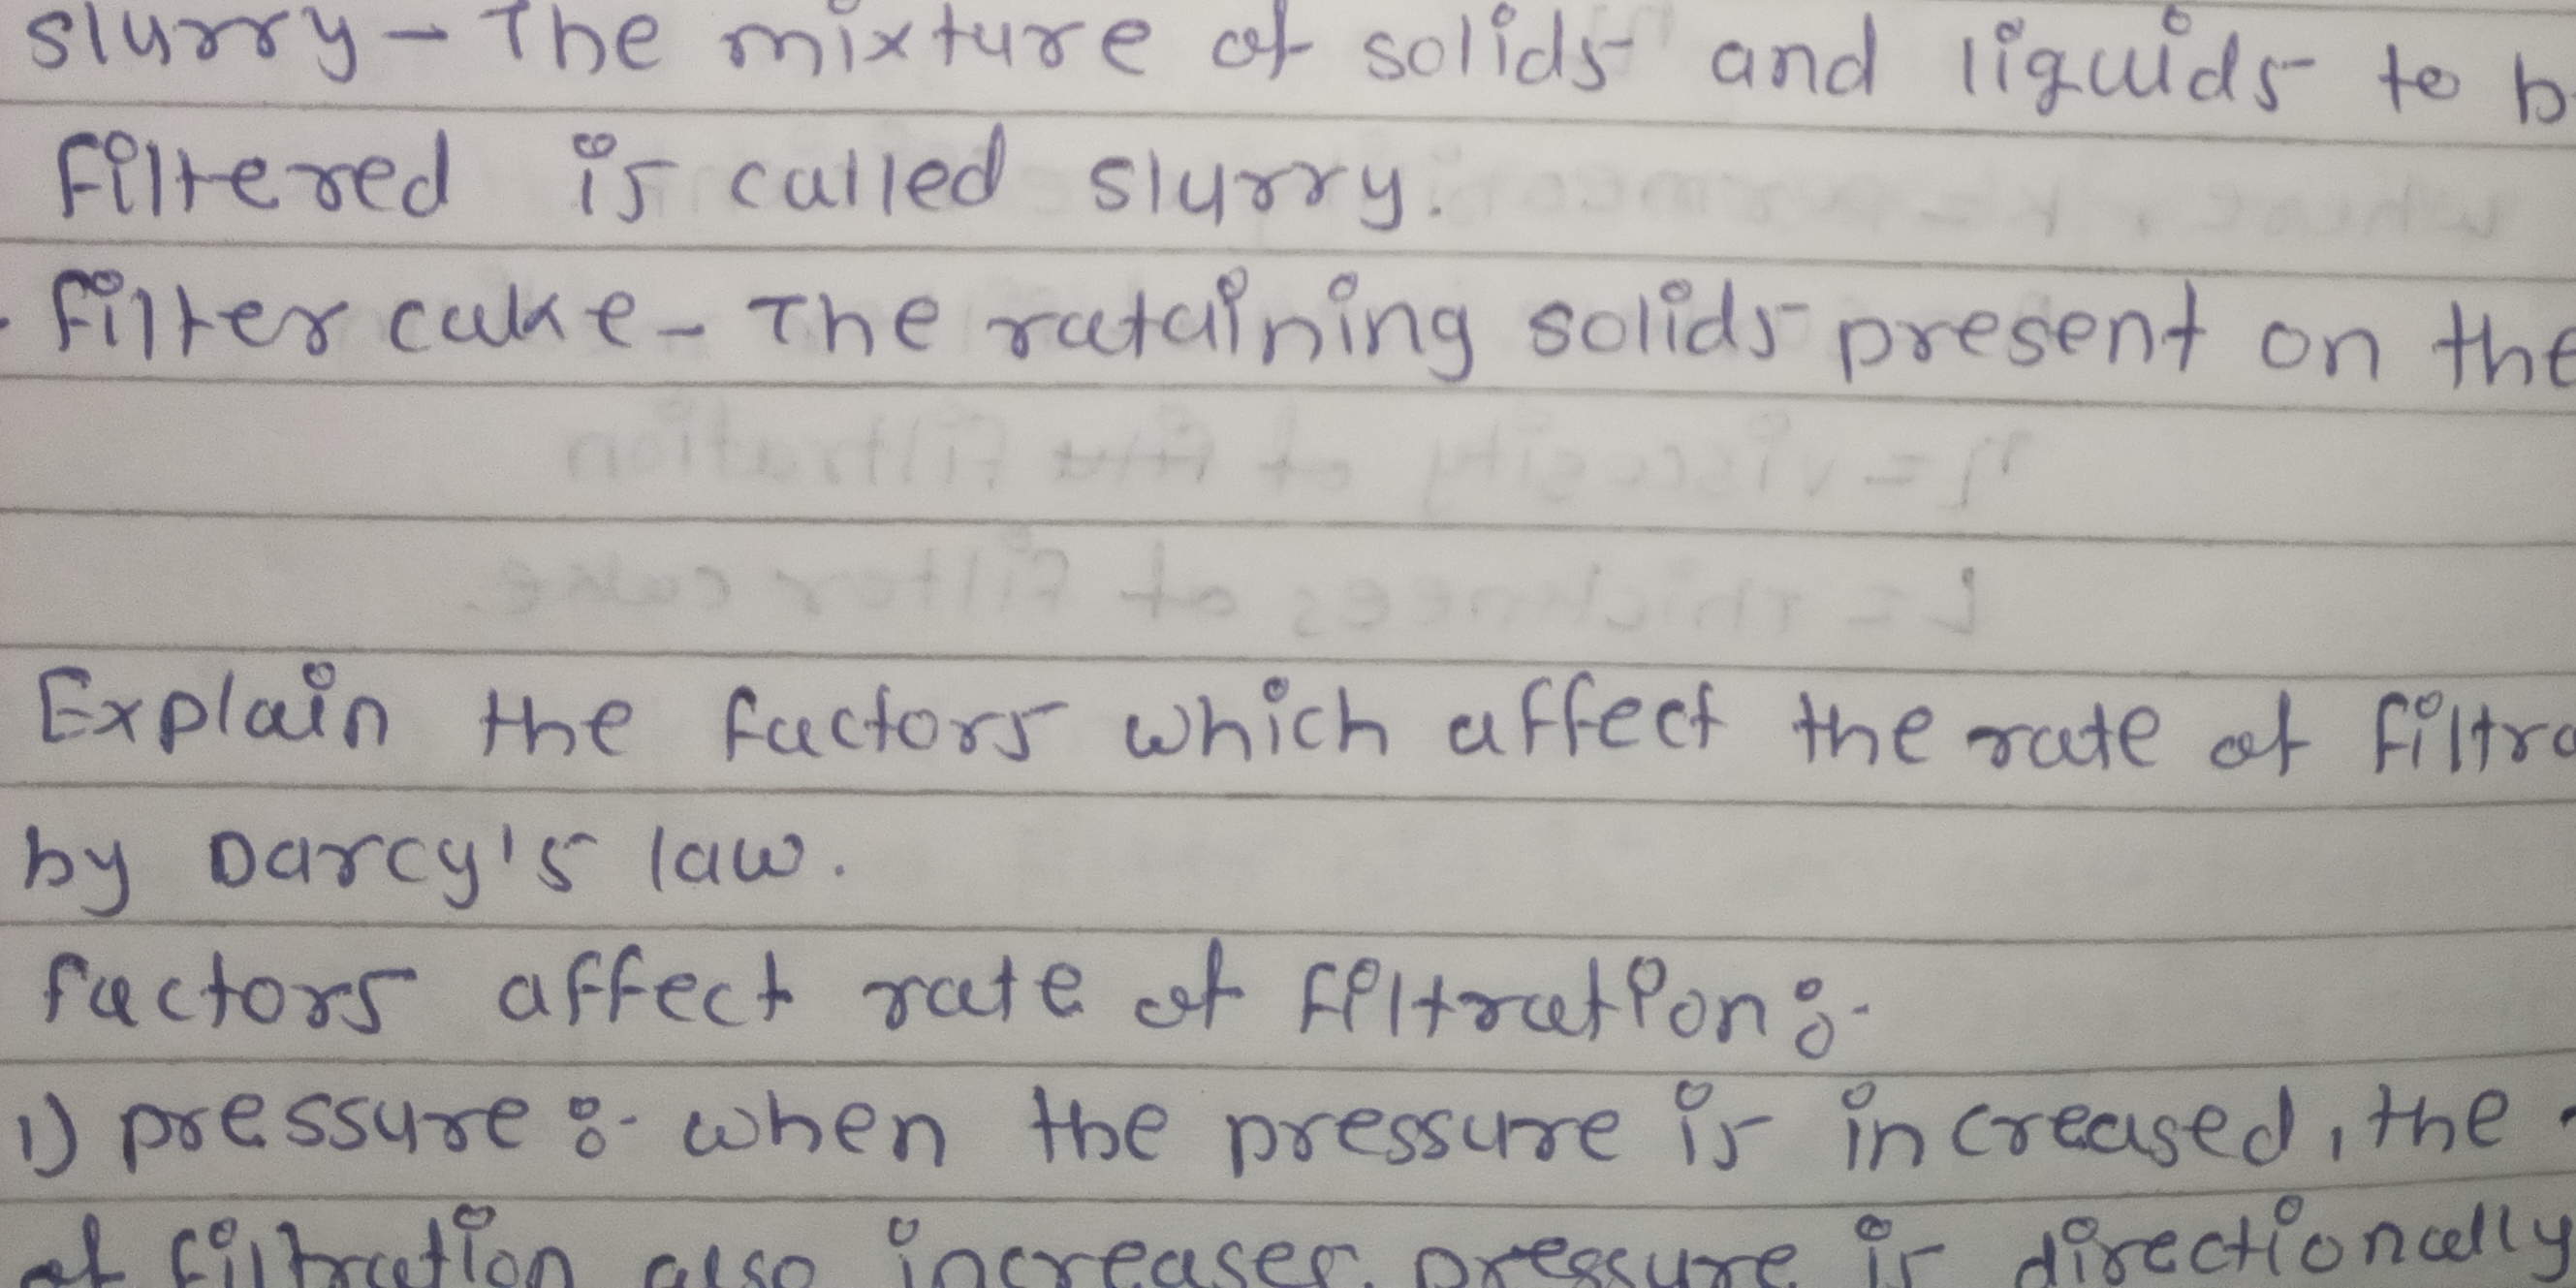 slurry - The mixture of solids and liquids to b
filtered is called slurry.
filter cake - The rataining solids present on the
Explain the factors which affect the rate of filtra
by Darcy's law.
factors affect rate of filtration :-
1) pressure :- when the pressure is increased, the
of filtration also increases. pressure is directionally